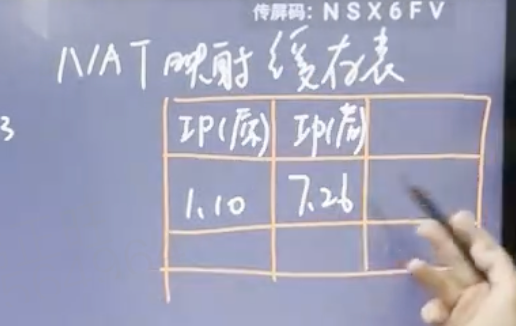 传屏码: NSX6FV
NAT映射缓存表
3
IP(原) IP(高)
1.10 7.26